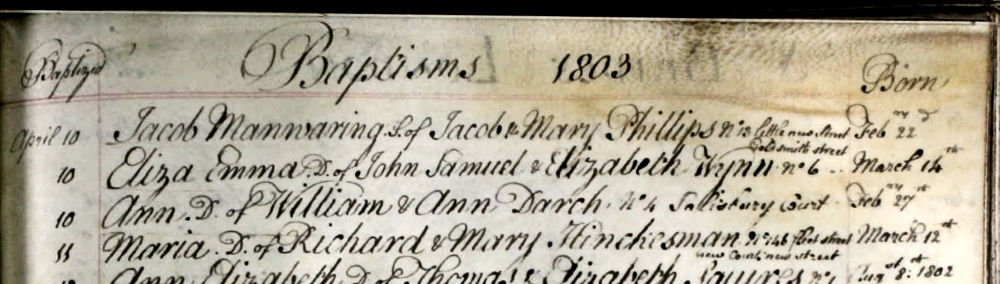 Baptized Baptisms 1803 Born
April 10 Jacob Manwaring. S. of Jacob & Mary Phillips No 13 little new Street Feby 22d
Goldsmith street
10 Eliza Emma. D. of John Samuel & Elizabeth Wynn no 6 .. March 14th
10 Ann. D. of William & Ann Darch. No 4 Salisbury Court. Feby 27th
11 Maria. D. of Richard & Mary Hinchesman No 146 fleet street March 12th
new street
Ann Elizabeth D. of Thomas & Elizabeth Squires No 1 Augst 8th 1802